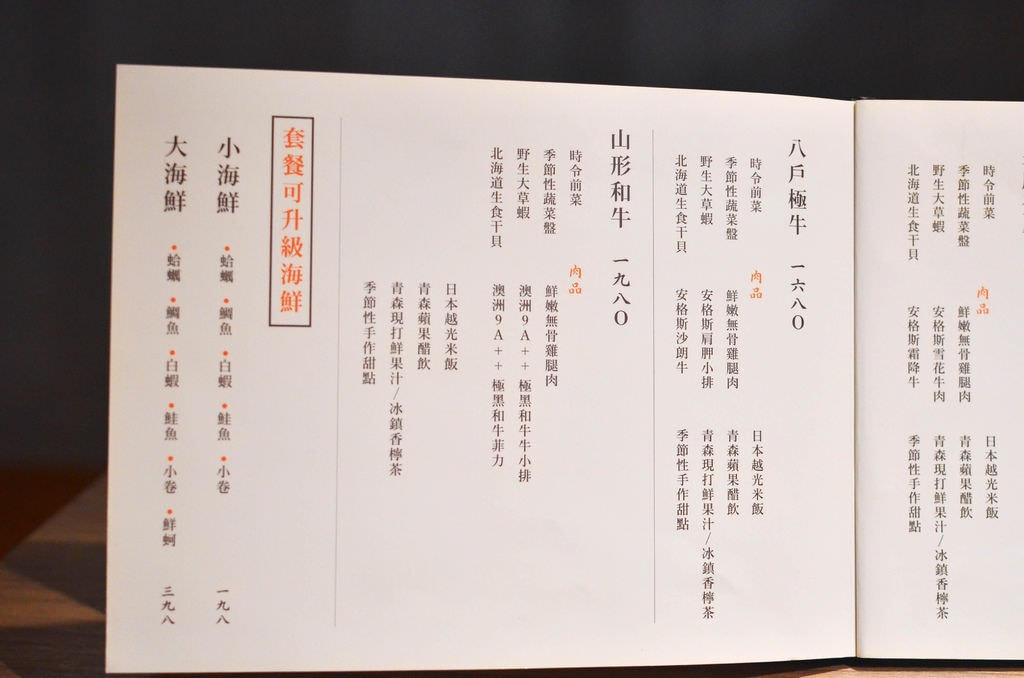 時令前菜
季節性蔬菜盤
野生大草蝦
北海道生食干貝
肉品
鮮嫩無骨雞腿肉
安格斯雪花牛肉
安格斯霜降牛
日本越光米飯
青森蘋果醋飲
青森現打鮮果汁/冰鎮香檸茶
季節性手作甜點
八戶極牛 一六八〇
時令前菜
季節性蔬菜盤
野生大草蝦
北海道生食干貝
肉品
鮮嫩無骨雞腿肉
安格斯肩胛小排
安格斯沙朗牛
日本越光米飯
青森蘋果醋飲
青森現打鮮果汁/冰鎮香檸茶
季節性手作甜點
山形和牛 一九八〇
時令前菜
季節性蔬菜盤
野生大草蝦
北海道生食干貝
肉品
鮮嫩無骨雞腿肉
澳洲9A++極黑和牛牛小排
澳洲9A++極黑和牛菲力
日本越光米飯
青森蘋果醋飲
青森現打鮮果汁/冰鎮香檸茶
季節性手作甜點
套餐可升級海鮮
小海鮮 •蛤蠣•鯛魚•白蝦•鮭魚•小卷 一九八
大海鮮 •蛤蠣•鯛魚•白蝦•鮭魚•小卷•鮮蚵 三九八